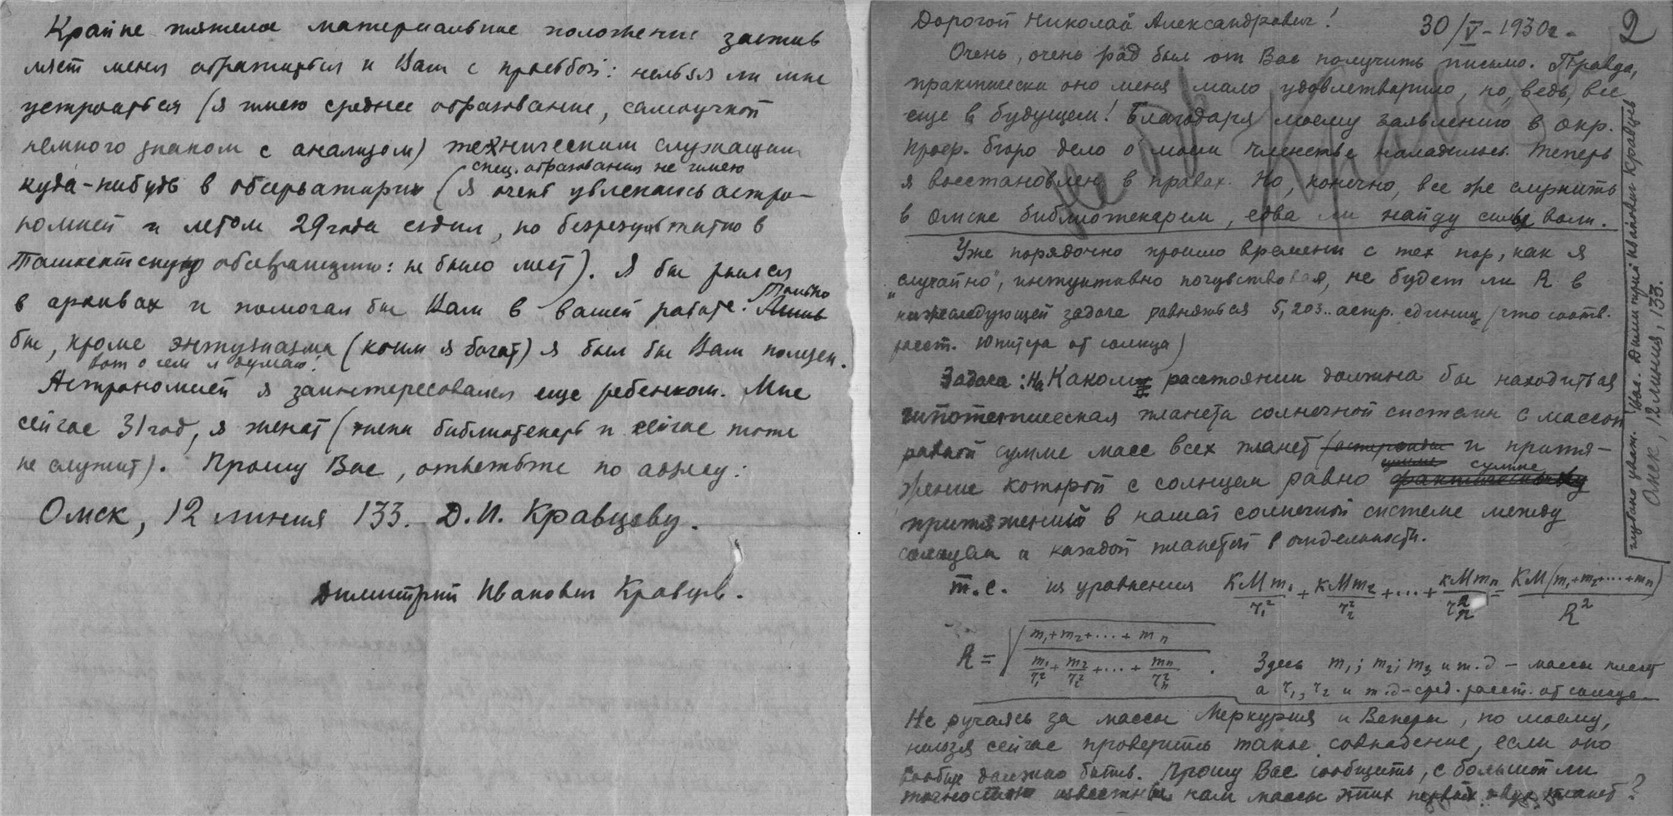 Крайне тяжелое материальное положение застав
ляет меня обратиться к Вам с просьбой: нельзя ли мне
устроиться (я имею среднее образование, самоучкой
немного знаком с анализом) техническим служащим
спец. образования не имею
куда-нибудь в обсерваторию (я очень увлекаюсь астро-
номией и летом 29 года ездил, но безрезультатно в
Ташкентскую обсерваторию: не было мест). Я бы рылся
в архивах и помогал бы Вам в вашей работе. Только
бы, кроме энтузиазма (коим я богат) я был бы Вам полезен.
вот о чем я думаю!
Астрономией я заинтересовался еще ребенком. Мне
сейчас 31 год, я женат (жена библиотекарь и сейчас тоже
не служит). Прошу Вас, ответьте по адресу:
Омск, 12 линия 133. Д.И. Кравцеву.
Димитрий Иванович Кравцев.
2
Дорогой Николай Александрович! 30/V-1930г.
Очень, очень рад был от Вас получить письмо. Правда,
практически оно меня мало удовлетворило, но, ведь, все
еще в будущем! Благодаря моему заявлению в окр.
проф. бюро дело о моем членстве наладилось. Теперь
я восстановлен в правах. Но, конечно, все же служить
в Омске библиотекарем, едва ли найду силы воли.
Уже порядочно прошло времени с тех пор, как я
„случайно", интуитивно почувствовал, не будет ли R в
нижеследующей задаче равняться 5,203.. астр. единиц (что соотв.
расст. Юпитера от солнца)
Задача: На каком расстоянии должна бы находиться
гипотетическая планета солнечной системы с массой
равной сумме масс всех планет и притя-
жение которой с солнцем равно сумме
притяжений в нашей солнечной системе между
солнцем и каждой планетой в отдельности.
т.е. из уравнения KMm₁/r₁² + kMm₂/r₂² + ... + kMmₙ/rₙ² = KM(m₁+m₂+...+mₙ)/R²
R = √((m₁+m₂+...+mₙ)/(m₁/r₁² + m₂/r₂² + ... + mₙ/rₙ²)). Здесь m₁; m₂; m₃ и т.д – массы планет
а r₁, r₂ и т.д–сред. расст. от солнца.
Не ручаясь за массы Меркурия и Венеры, по моему,
нельзя сейчас проверить такое совпадение, если оно
вообще должно быть. Прошу Вас сообщить, с большой ли
точностью известны нам массы этих первых двух планет?
глубоко уваж. Вас. Димитрий Иванович Кравцев
Омск, 12 линия, 133.